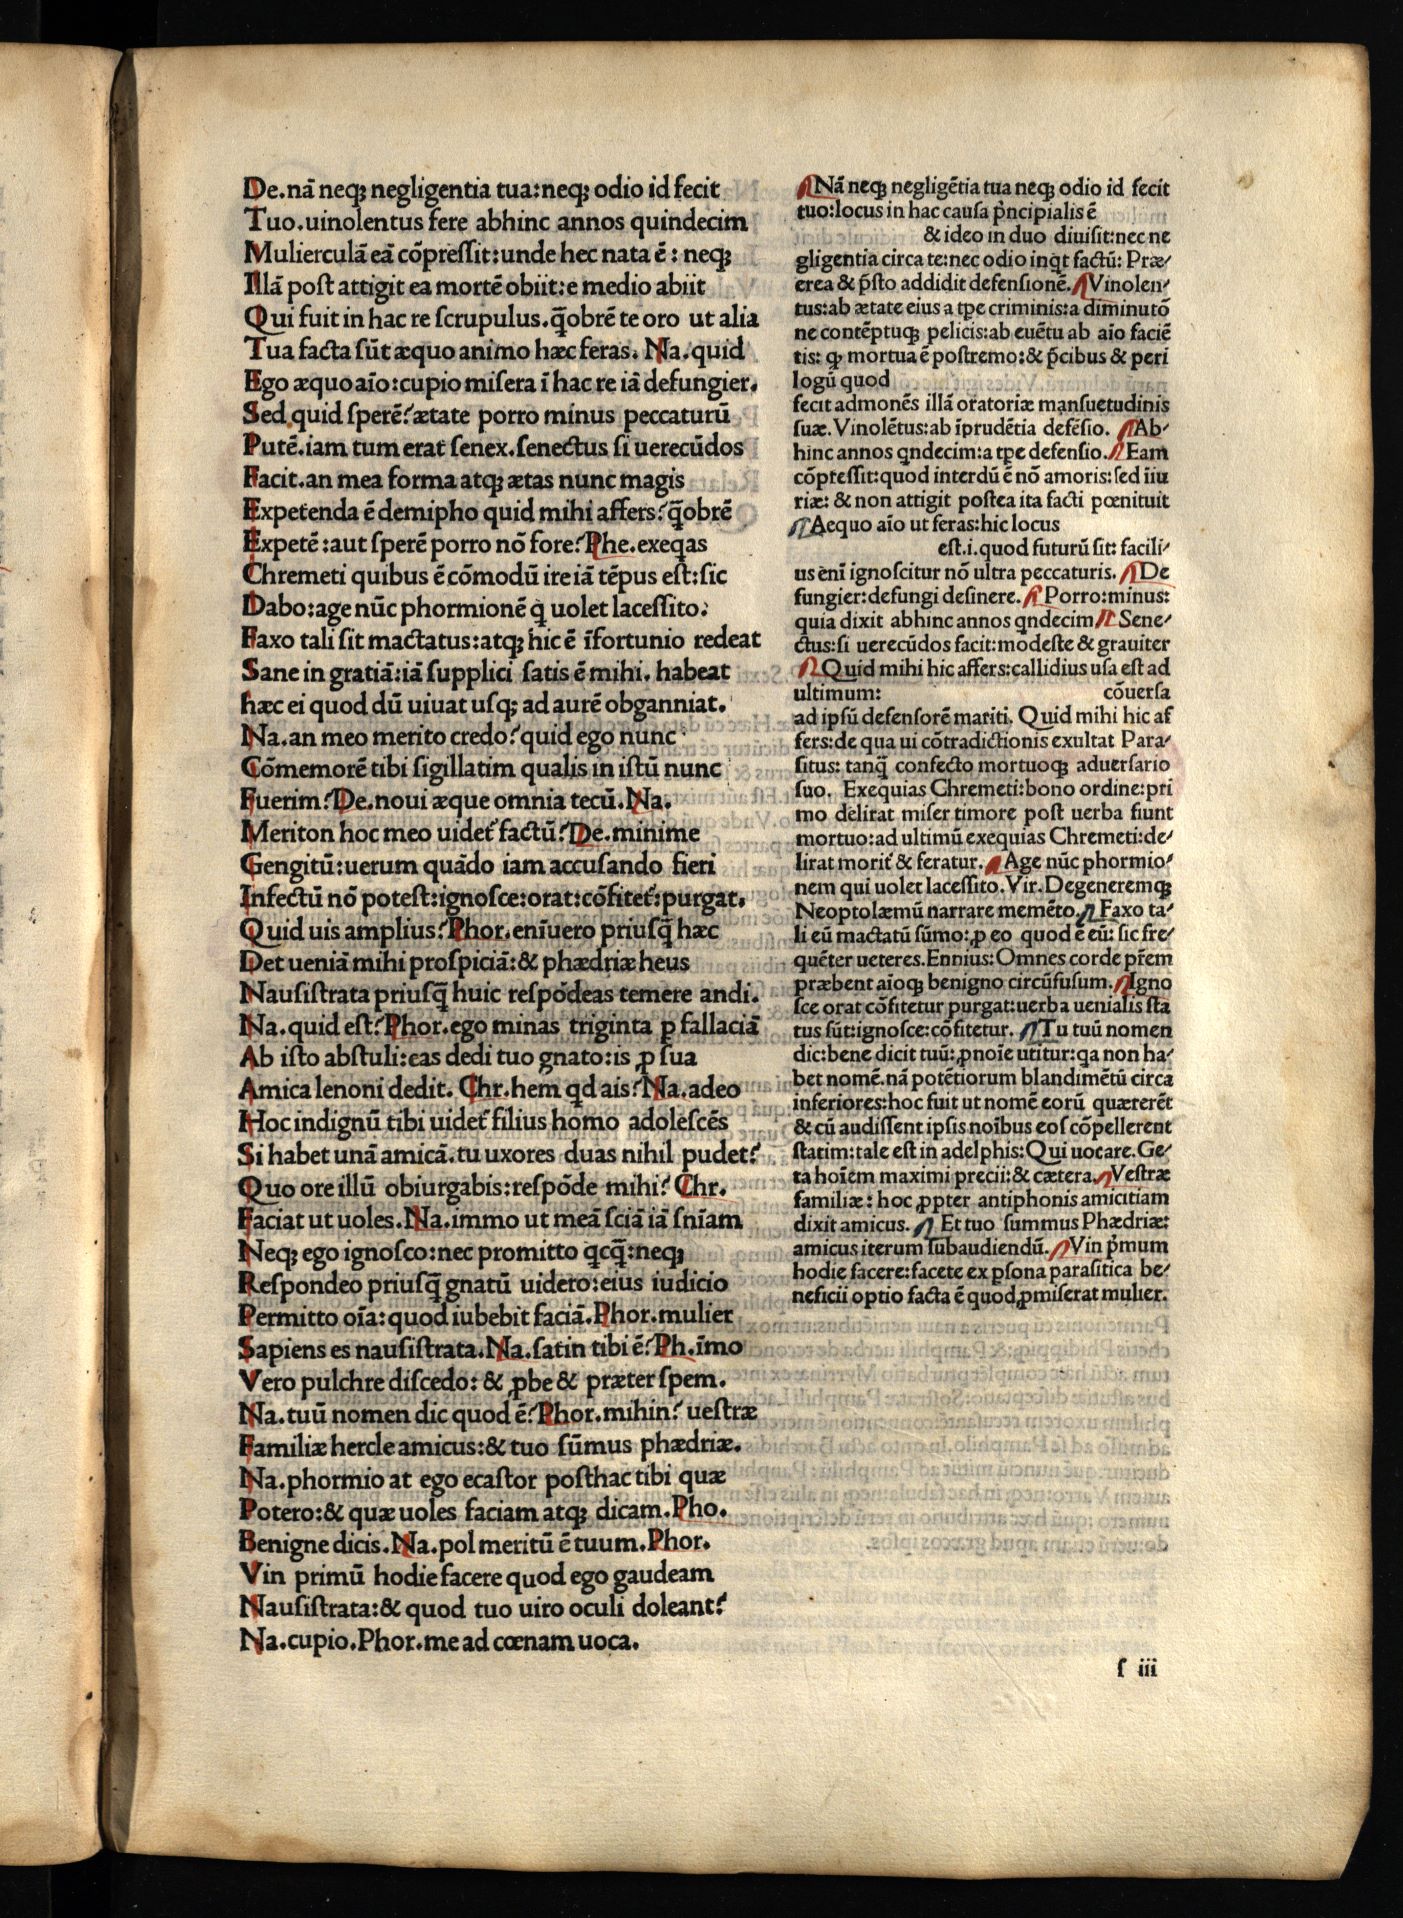 De.nā neqꝫ negligentia tua:neqꝫ odio id fecit
Tuo.uinolentus fere abhinc annos quindecim
Mulierculā eā cōpreſſit:unde hec nata ē: neqꝫ
Illā poſt attigit ea mortē obiit:e medio abiit
Qui fuit in hac re ſcrupulus.q̄obrē te oro ut alia
Tua facta ſūt æquo animo hæc feras. Na.quid
Ego æquo aīo:cupio miſera ī hac re iā defungier.
Sed quid ſperē?ætate porro minus peccaturū
Putē.iam tum erat ſenex.ſenectus ſi uerecūdos
Facit.an mea forma atqꝫ ætas nunc magis
Expetenda ē demipho quid mihi affers?q̄obrē
Expetē:aut ſperē porro nō fore?Phe.exeqas
Chremeti quibus ē cōmodū ire iā tēpus eſt:ſic
Dabo:age nūc phormionē q̇ uolet laceſſito:
Faxo tali ſit mactatus:atqꝫ hic ē īfortunio redeat
Sane in gratiā:iā ſupplici ſatis ē mihi. habeat
hæc ei quod dū uiuat uſqꝫ ad aurē obganniat.
Na.an meo merito credo?quid ego nunc
Cōmemorē tibi ſigillatim qualis in iſtū nunc
Fuerim?De.noui æque omnia tecū.Na.
Meriton hoc meo uidet᷑ factū?De.minime
Gengitū:uerum quādo iam accuſando fieri
Infectū nō poteſt:ignoſce:orat:cōfitet᷑:purgat.
Quid uis amplius?Phor.enīuero priuſq̄ hæc
Det ueniā mihi proſpiciā:& phædriæ heus
Nauſiſtrata priuſq̄ huic reſpōdeas temere andi.
Na.quid eſt?Phor.ego minas triginta ꝑ fallaciā
Ab iſto abſtuli:eas dedi tuo gnato:is ꝓ ſua
Amica lenoni dedit. Chr.hem qd ais?Na.adeo
Hoc indignū tibi uidet᷑ filius homo adoleſcēs
Si habet unā amicā.tu uxores duas nihil pudet?
Quo ore illū obiurgabis:reſpōde mihi?Chr.
Faciat ut uoles.Na.immo ut meā ſciā iā ſnīam
Neqꝫ ego ignoſco:nec promitto qcq̄:neqꝫ
Reſpondeo priuſq̄ gnatū uidero:eius iudicio
Permitto oīa:quod iubebit faciā.Phor.mulier
Sapiens es nauſiſtrata.Na.ſatin tibi ē?Ph.īmo
Vero pulchre diſcedo: & ꝓbe & præter ſpem.
Na.tuū nomen dic quod ē?Phor.mihin?ueſtræ
Familiæ hercle amicus:& tuo ſūmus phædriæ.
Na.phormio at ego ecaſtor poſthac tibi quæ
Potero:& quæ uoles faciam atqꝫ dicam.Pho.
Benigne dicis.Na.pol meritū ē tuum.Phor.
Vin primū hodie facere quod ego gaudeam
Nauſiſtrata:& quod tuo uiro oculi doleant?
Na.cupio.Phor.me ad cœnam uoca.
Nā neqꝫ negligētia tua neqꝫ odio id fecit
tuo:locus in hac cauſa p̄ncipialis ē
& ideo in duo diuiſit:nec ne
gligentia circa te:nec odio inq̇t factū: Præ-
erea & p̄ſto addidit defenſionē. Vinolen-
tus:ab ætate eius a tꝑe criminis:a diminutō
ne contēptuqꝫ pelicis:ab euētu ab aīo faciē
tis: qꝫ mortua ē poſtremo:& p̄cibus & peri
logū quod
fecit admonēs illā oratoriæ manſuetudinis
ſuæ.Vinolētus:ab īprudētia defēſio. Ab-
hinc annos qndecim:a tꝑe defenſio. Eam
cōpreſſit:quod interdū ē nō amoris:ſed īiu
riæ: & non attigit poſtea ita facti pœnituit
Aequo aīo ut feras:hic locus
eſt.i.quod futurū ſit: facili-
us enī ignoſcitur nō ultra peccaturis. De
fungier:defungi deſinere. Porro:minus:
quia dixit abhinc annos qndecim Sene-
ctus:ſi uerecūdos facit:modeſte & grauiter
Quid mihi hic affers:callidius uſa eſt ad
ultimum: cōuerſa
ad ipſū defenſorē mariti. Quid mihi hic af
fers:de qua ui cōtradictionis exultat Para-
ſitus: tanq̄ confecto mortuoqꝫ aduerſario
ſuo. Exequias Chremeti:bono ordine:pri
mo delirat miſer timore poſt uerba fiunt
mortuo:ad ultimū exequias Chremeti:de-
lirat morit᷑ & feratur. Age nūc phormio-
nem qui uolet laceſſito.Vir.Degeneremqꝫ
Neoptolæmū narrare memēto. Faxo ta-
li eū mactatū ſūmo:ꝓ eo quod ē eū: ſic fre-
quēter ueteres.Ennius:Omnes corde p̄rem
præbent aīoqꝫ benigno circūfuſum. Igno
ſce orat cōfitetur purgat:uerba uenialis ſta
tus ſūt:ignoſce:cōfitetur. Tu tuū nomen
dic:bene dicit tuū:ꝓnoīe utitur:qa non ha-
bet nomē.nā potētiorum blandimētū circa
inferiores:hoc fuit ut nomē eorū quærerēt
& cū audiſſent ipſis noībus eos cōpellerent
ſtatim:tale eſt in adelphis:Qui uocare.Ge-
ta hoīem maximi precii:& cætera. Veſtræ
familiæ: hoc ꝓpter antiphonis amicitiam
dixit amicus. Et tuo ſummus Phædriæ:
amicus iterum ſubaudiendū. Vin p̄mum
hodie facere:facete ex ꝑſona paraſitica be-
neficii optio facta ē quod ꝓmiſerat mulier.
ſ iii